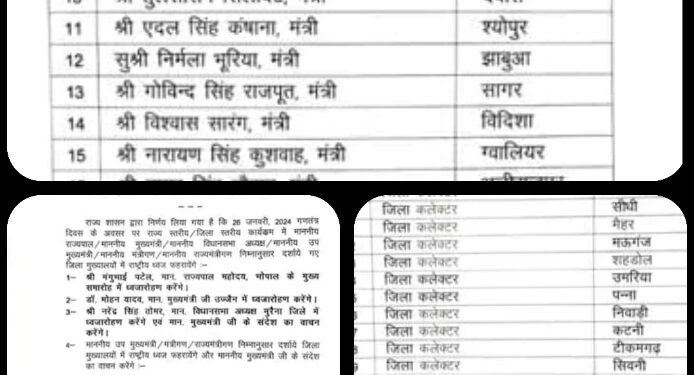 11 श्री एदल सिंह कंषाना, मंत्री श्योपुर
12 सुश्री निर्मला भूरिया, मंत्री झाबुआ
13 श्री गोविन्द सिंह राजपूत, मंत्री सागर
14 श्री विश्वास सारंग, मंत्री विदिशा
15 श्री नारायण सिंह कुशवाह, मंत्री ग्वालियर
राज्य शासन द्वारा निर्णय लिया गया है कि 26 जनवरी, 2024 गणतंत्र
दिवस के अवसर पर राज्य स्तरीय/जिला स्तरीय कार्यक्रम में माननीय
राज्यपाल/माननीय मुख्यमंत्री/माननीय विधानसभा अध्यक्ष/माननीय उप
मुख्यमंत्री/माननीय मंत्रीगण/माननीय राज्यमंत्रीगण निम्नानुसार दर्शाये गए
जिला मुख्यालयों में राष्ट्रीय ध्वज फहरायेंगे :–
1– श्री मंगुभाई पटेल, मान. राज्यपाल महोदय, भोपाल के मुख्य
समारोह में ध्वजारोहण करेंगे।
2– डॉ. मोहन यादव, मान. मुख्यमंत्री जी उज्जैन में ध्वजारोहण करेंगे।
3– श्री नरेंद्र सिंह तोमर, मान. विधानसभा अध्यक्ष मुरैना जिले में
ध्वजारोहण करेंगे एवं मान. मुख्यमंत्री जी के संदेश का वाचन
करेंगे।
4– माननीय उप मुख्यमंत्री/मंत्रीगण/राज्यमंत्रीगण निम्नानुसार दर्शाये जिला
मुख्यालयों में राष्ट्रीय ध्वज फहरायेंगे और माननीय मुख्यमंत्री जी के संदेश
का वाचन करेंगे :–
जिला कलेक्टर सीधी
जिला कलेक्टर मैहर
जिला कलेक्टर मऊगंज
जिला कलेक्टर शहडोल
जिला कलेक्टर उमरिया
जिला कलेक्टर पन्ना
जिला कलेक्टर निवाड़ी
जिला कलेक्टर कटनी
जिला कलेक्टर टीकमगढ़
जिला कलेक्टर सिवनी